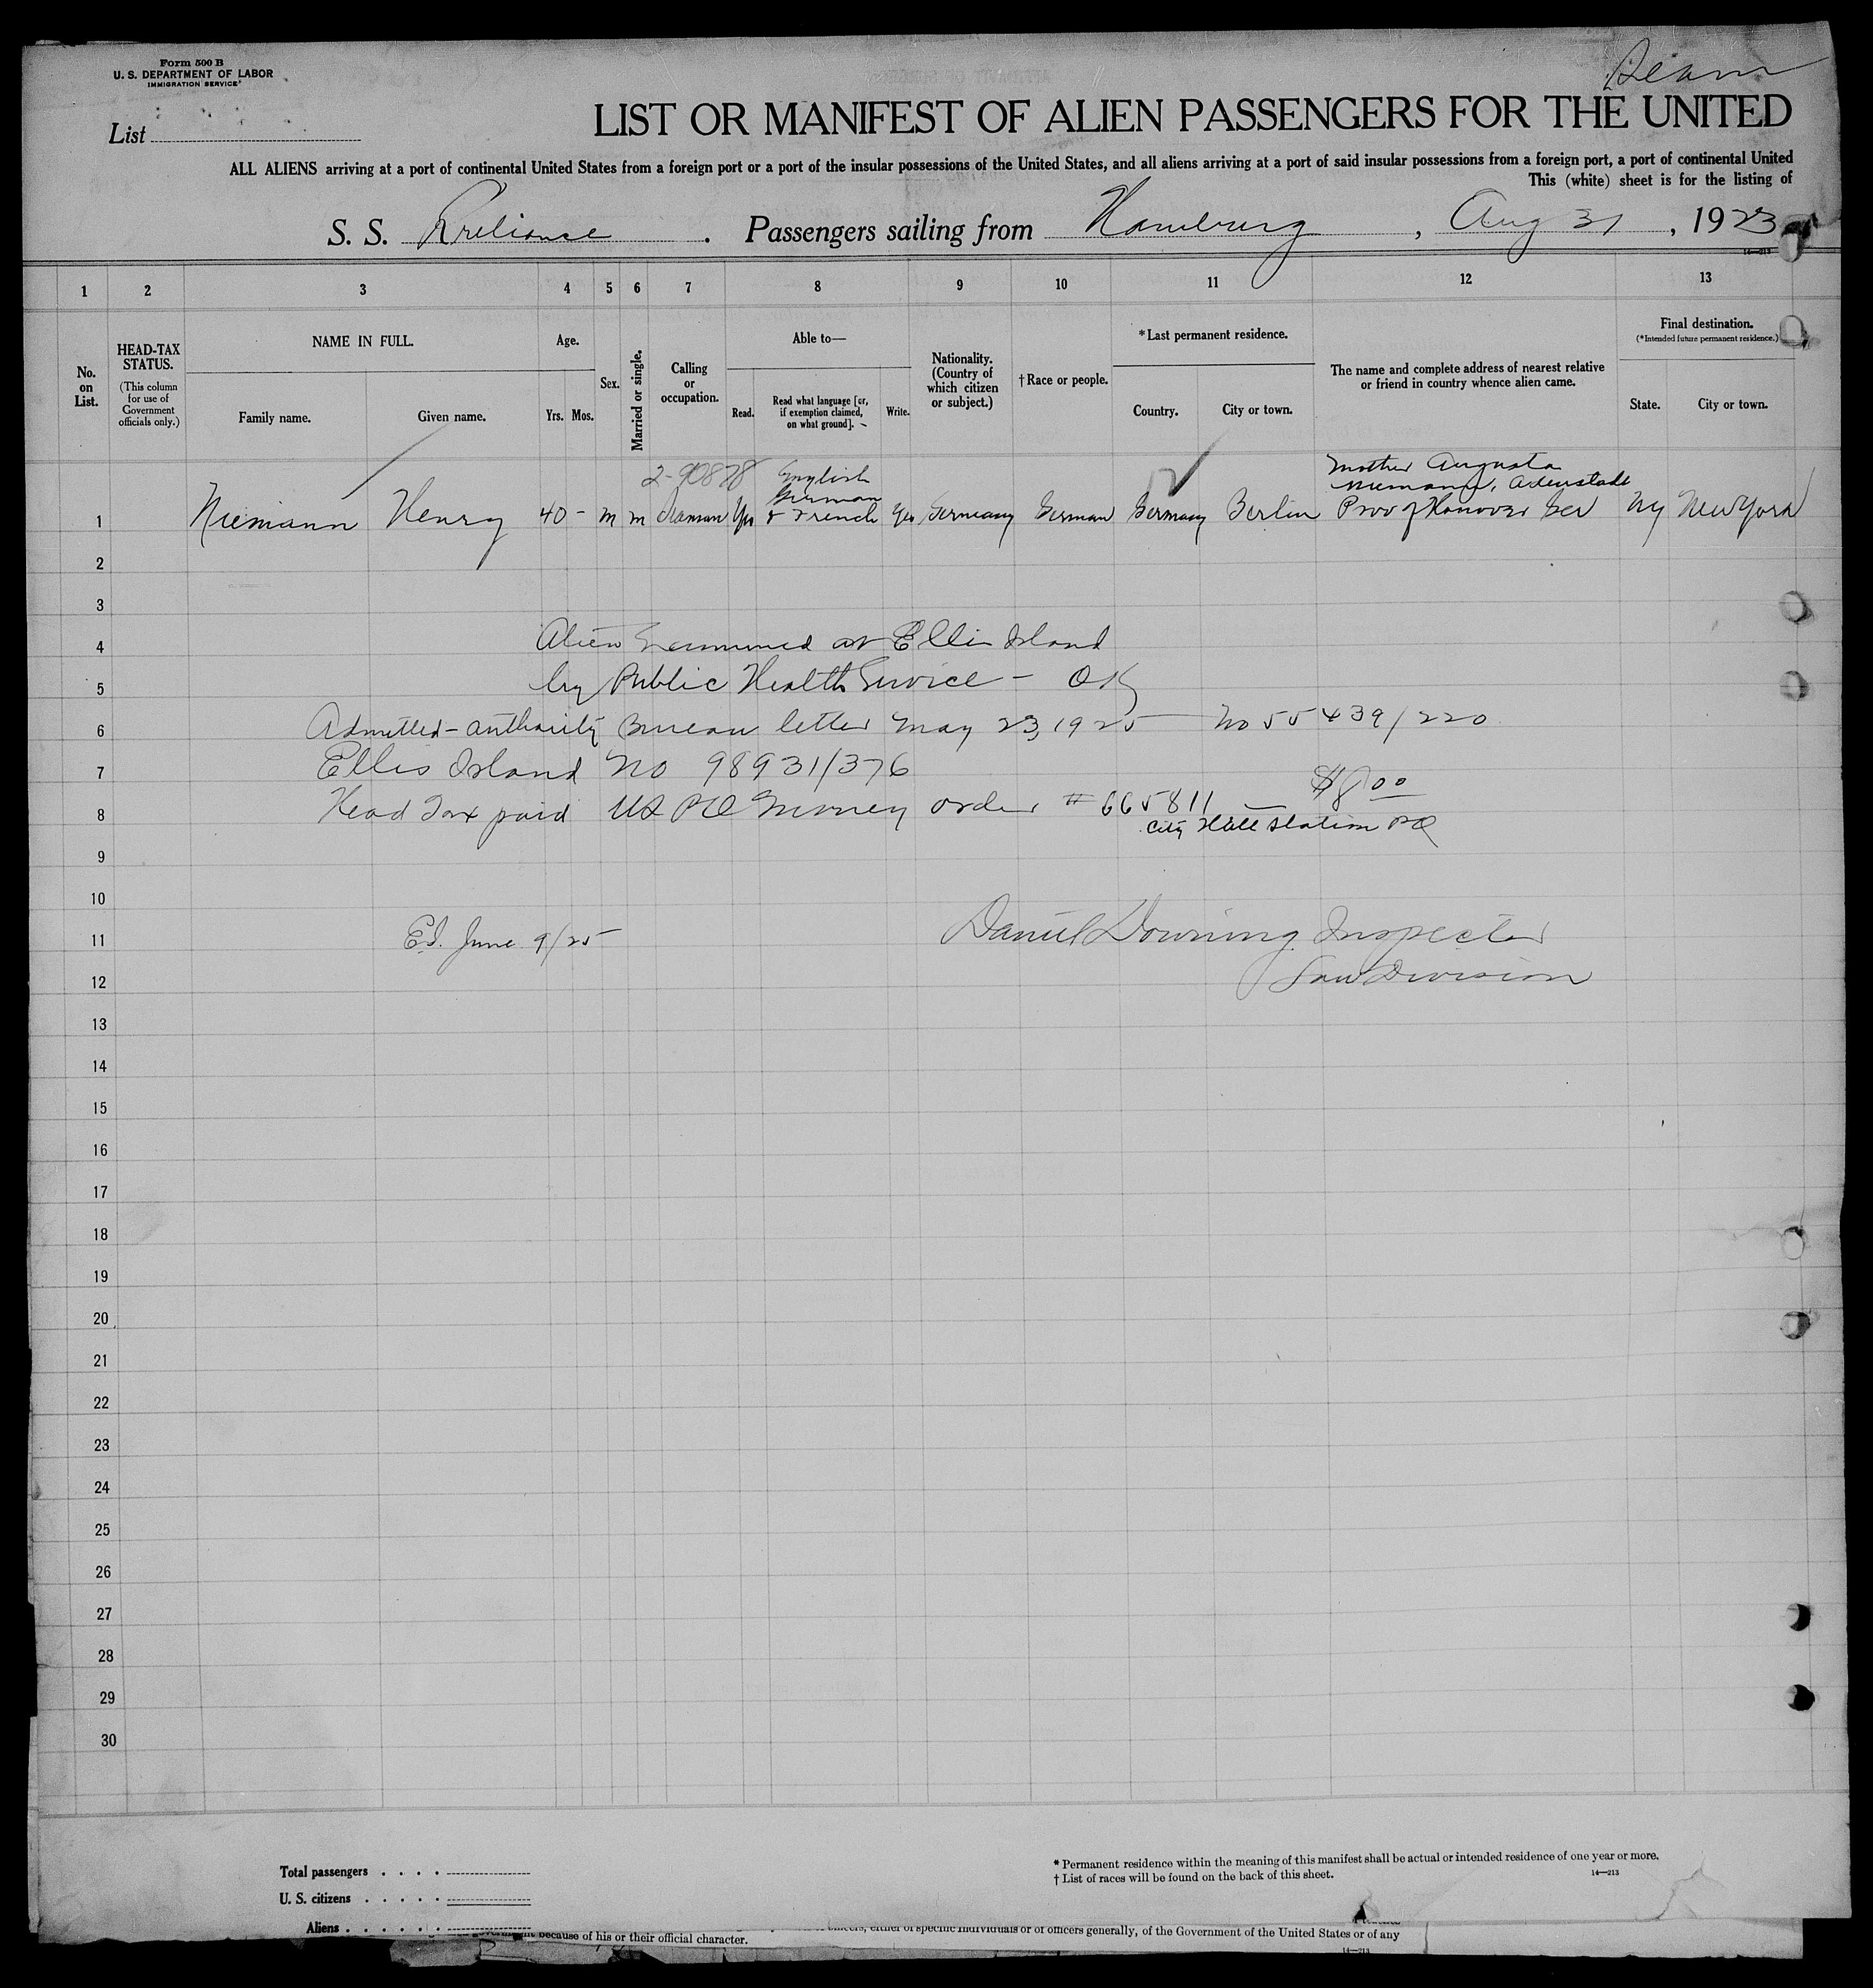 Form 500 B
U. S. DEPARTMENT OF LABOR
IMMIGRATION SERVICE
List
LIST OR MANIFEST OF ALIEN PASSENGERS FOR THE UNITED
ALL ALIENS arriving at a port of continental United States from a foreign port or a port of the insular possessions of the United States, and all aliens arriving at a port of said insular possessions from a foreign port, a port of continental United
This (white) sheet is for the listing of
S. S. Reliance . Passengers sailing from Hamburg , Aug 31 , 1923
14—213
1 2 3 4 5 6 7 8 9 10 11 12 13
No. on List.
HEAD-TAX STATUS.
(This column for use of Government officials only.)
NAME IN FULL.
Family name. Given name.
Age.
Yrs. Mos.
Sex.
Married or single.
Calling or occupation.
Able to—
Read. Read what language [or, if exemption claimed, on what ground]. Write.
Nationality. (Country of which citizen or subject.)
†Race or people.
*Last permanent residence.
Country. City or town.
The name and complete address of nearest relative or friend in country whence alien came.
Final destination.
(*Intended future permanent residence.)
State. City or town.
2-90878 English Mother Augusta
German Niemann, Adenstadt
1 Niemann Henry 40 - m m Seaman Yes & French Yes Germany German Germany Berlin Prov of Hanover Ger NY New York
2
3
4 Alien Examined at Ellis Island
5 by Public Health Service - OK
6 Admitted - authority Bureau letter May 23, 1925 No 55439/220
7 Ellis Island No 98931/376
8 Head Tax paid US PO Money order # 665811 — $8.00
City Hall Station PO
9
10
11 E.I. June 9/25 Daniel Downing Inspector
12 Law Division
13
14
15
16
17
18
19
20
21
22
23
24
25
26
27
28
29
30
Total passengers . . . .
U. S. citizens . . . . .
Aliens . . . . . .
* Permanent residence within the meaning of this manifest shall be actual or intended residence of one year or more.
† List of races will be found on the back of this sheet.
14—213
officers, either of specific individuals or of officers generally, of the Government of the United States or of any
government because of his or their official character.
14—213